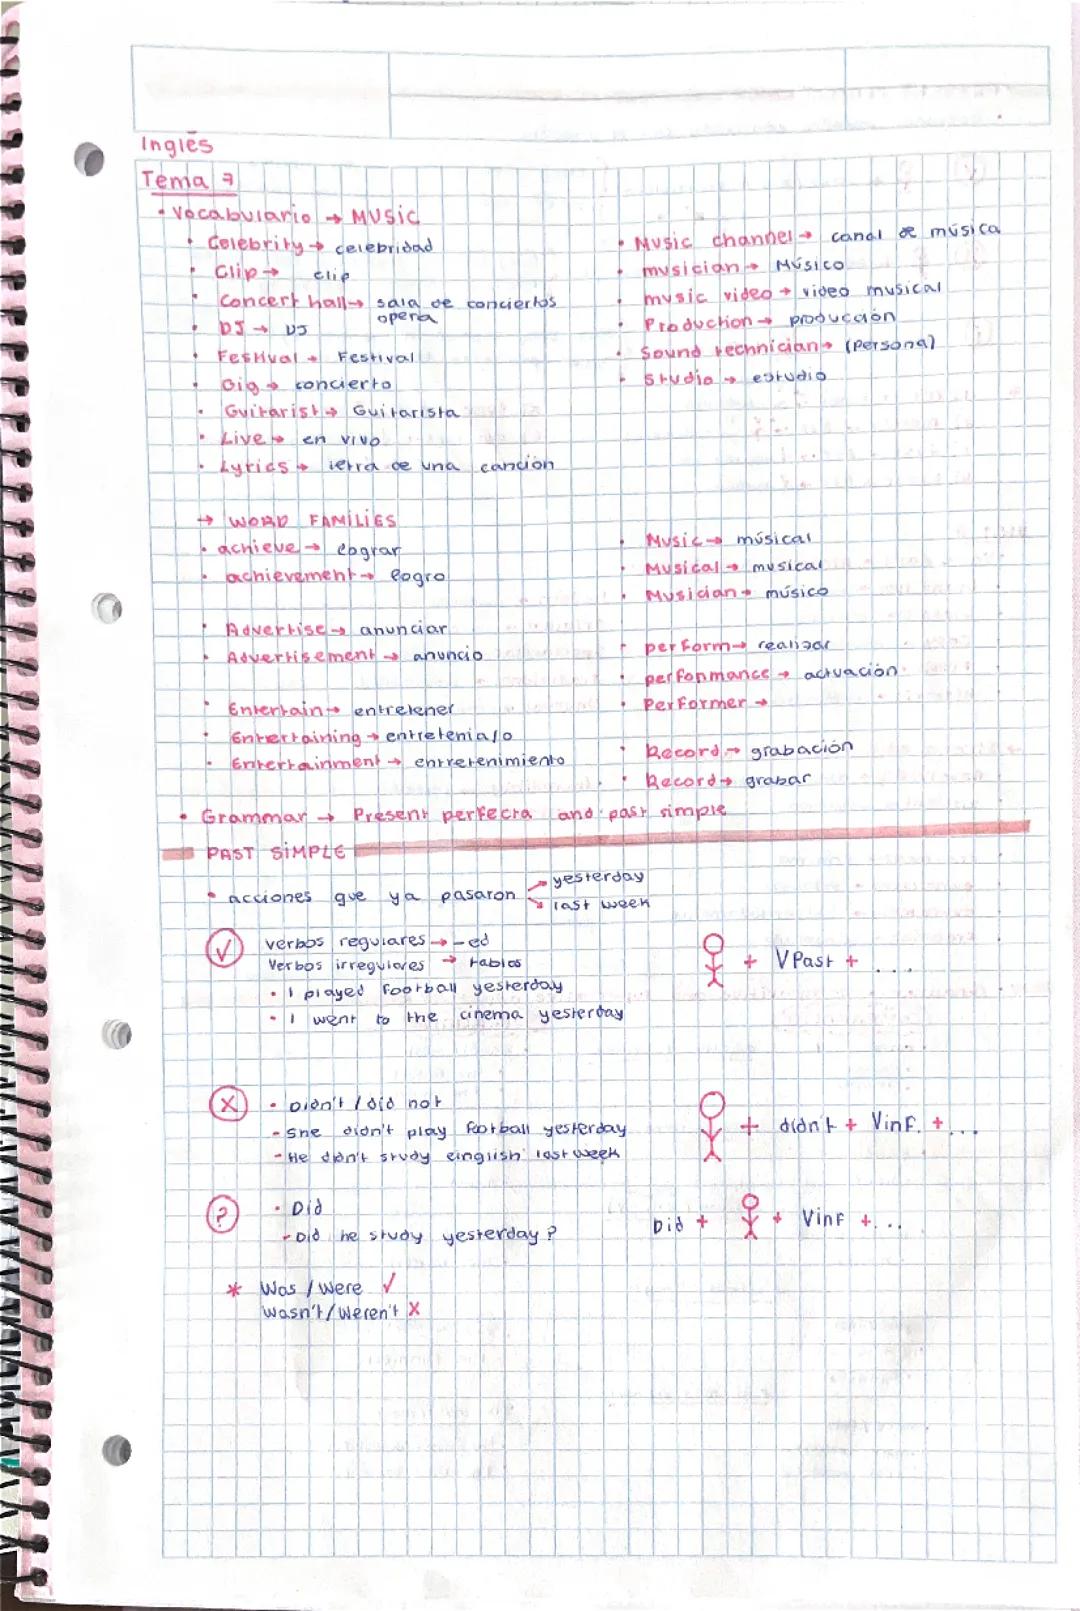 Inglés
Tema 7
• Vocabulario → MUSIC
• Celebrity → celebridad
• Clip → clip
• Concert hall → sala de conciertos
opera
• DJ → DJ
• Festival → Festival
• Gig → concierto
• Guitarist → Guitarista
• Live → en vivo
• Lyrics → letra de una canción
• Music channel → canal de música
• musician → Músico
• music video → video musical
• Production → producción
• Sound technician → (persona)
• Studio → estudio
→ WORD FAMILIES
• achieve → lograr
• achievement → logro
• Advertise → anunciar
• Advertisement → anuncio
• Entertain → entretener
• Entertaining → entretenia/o
• Entertainment → entretenimiento
• Music → músical
• Musical → musical
• Musician → músico
• perform → realizar
• performance → actuación
• Performer →
• Record → grabación
• Record → grabar
• Grammar → Present perfecta and past simple
PAST SIMPLE
• acciones que ya pasaron → yesterday
→ last week
✓ verbos regulares → -ed
Verbos irregulares → tablas
• I played football yesterday
• I went to the cinema yesterday
+ VPast + ....
X • Didn't / did not
- She didn't play football yesterday
- He didn't study einglish last week
+ didn't + Vinf. + ...
? • Did
- Did he study yesterday?
Did + + Vinf + ...
* Was / were ✓
Wasn't / Weren't X